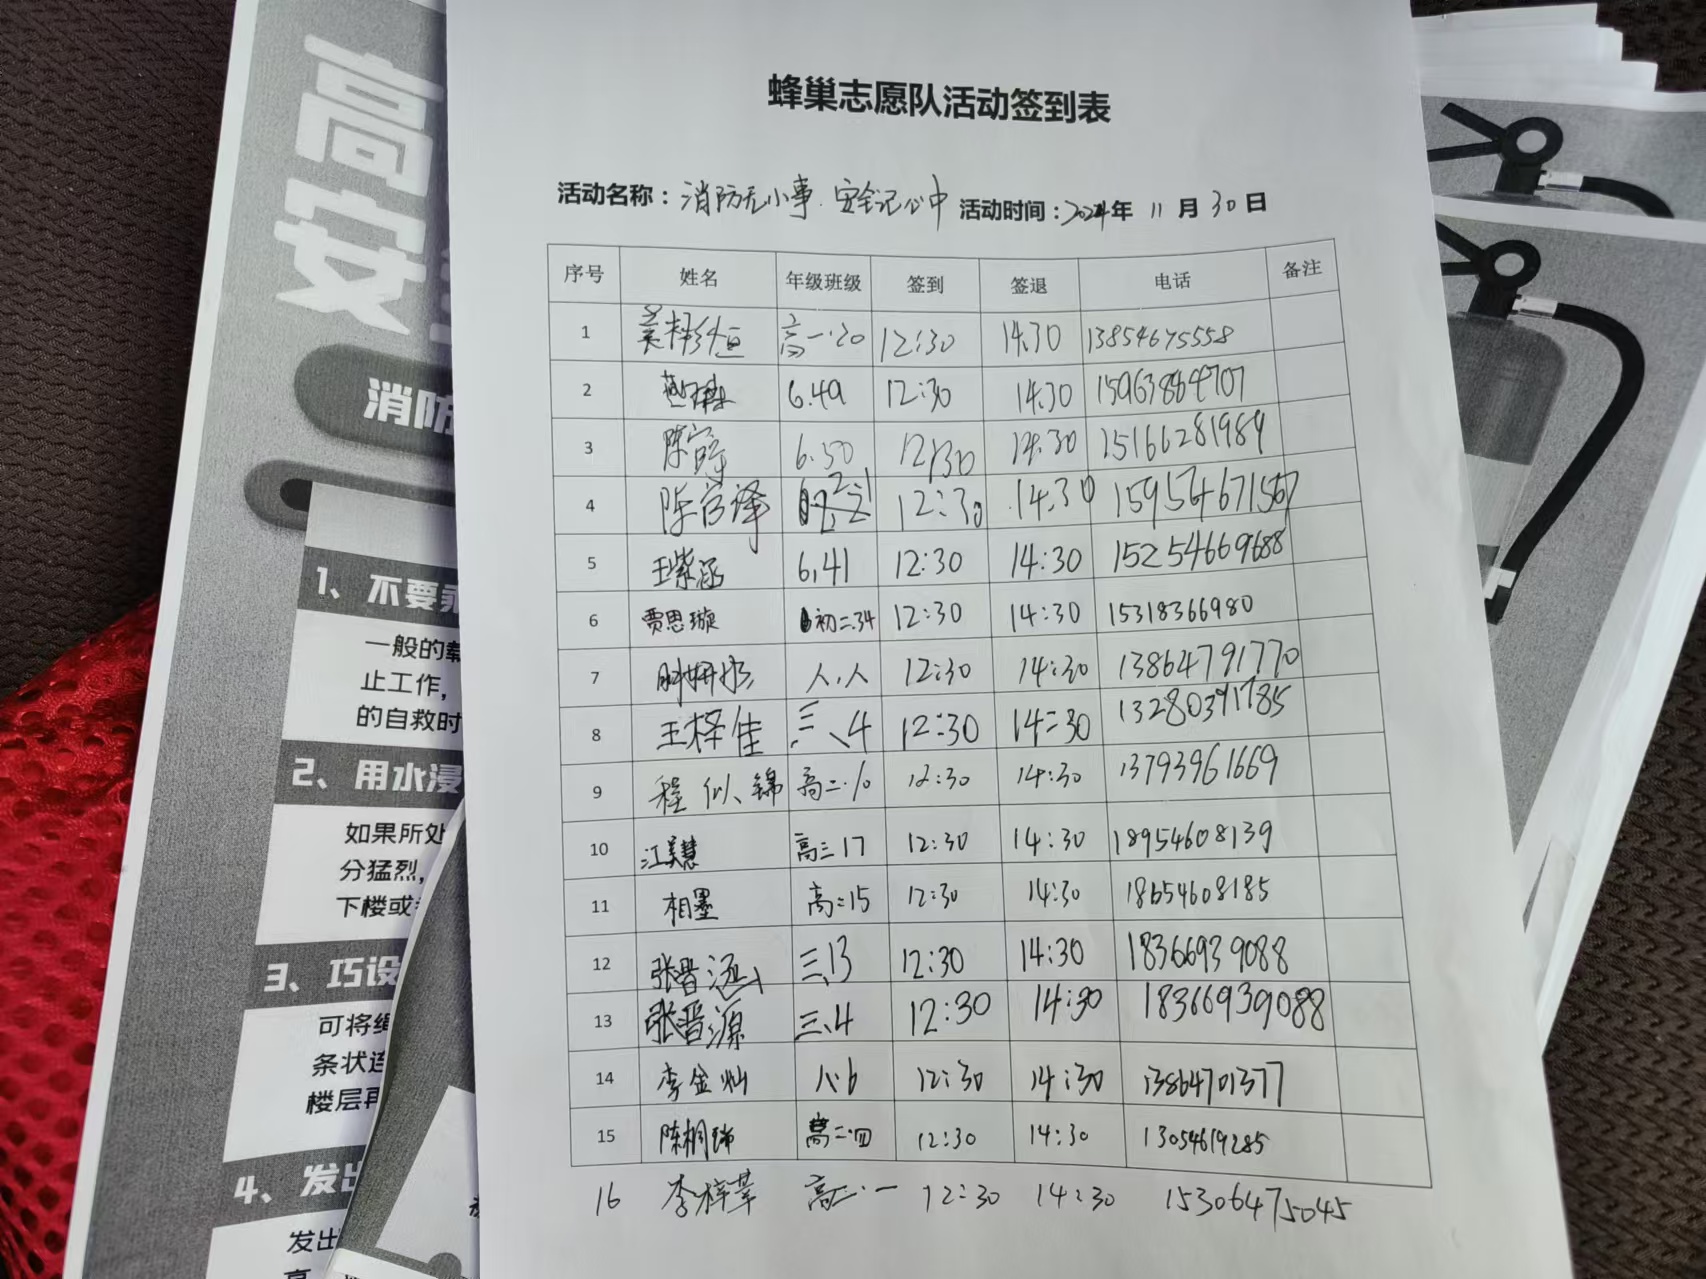 蜂巢志愿队活动签到表
活动名称：消防无小事.安全记心中 活动时间：2024年 11 月 30 日
序号 姓名 年级班级 签到 签退 电话 备注
1 高一.20 12:30 14:30 13854675558
2 6.49 12:30 14:30 15963864707
3 陈 6.50 12:30 14:30 15166281984
4 陈官泽 12:30 14:30
5 王紫涵 6.41 12:30 14:30 15254669688
6 贾思璇 初二.34 12:30 14:30 15318366980
7 八.八 12:30 14:30 13864791770
8 王梓佳 三、4 12:30 14:30 13280391785
9 程似锦 高二.10 12:30 14:30 13793961669
10 江美慧 高三17 12:30 14:30 18954608139
11 相墨 高二15 12:30 14:30 18654608185
12 张晋涵 三、13 12:30 14:30 18366939088
13 张晋源 三、4 12:30 14:30 18366939088
14 李金灿 八.6 12:30 14:30 13864701377
15 陈桐瑞 高二.四 12:30 14:30 13054619285
16 李梓苹 高二.一 12:30 14:30 15306475045
高
安
消防
1、不要乘
一般的载
止工作，
的自救时
2、用水浸
如果所处
分猛烈，
下楼或
3、巧设
可将绳
条状连
楼层再
4、发出
发出
高